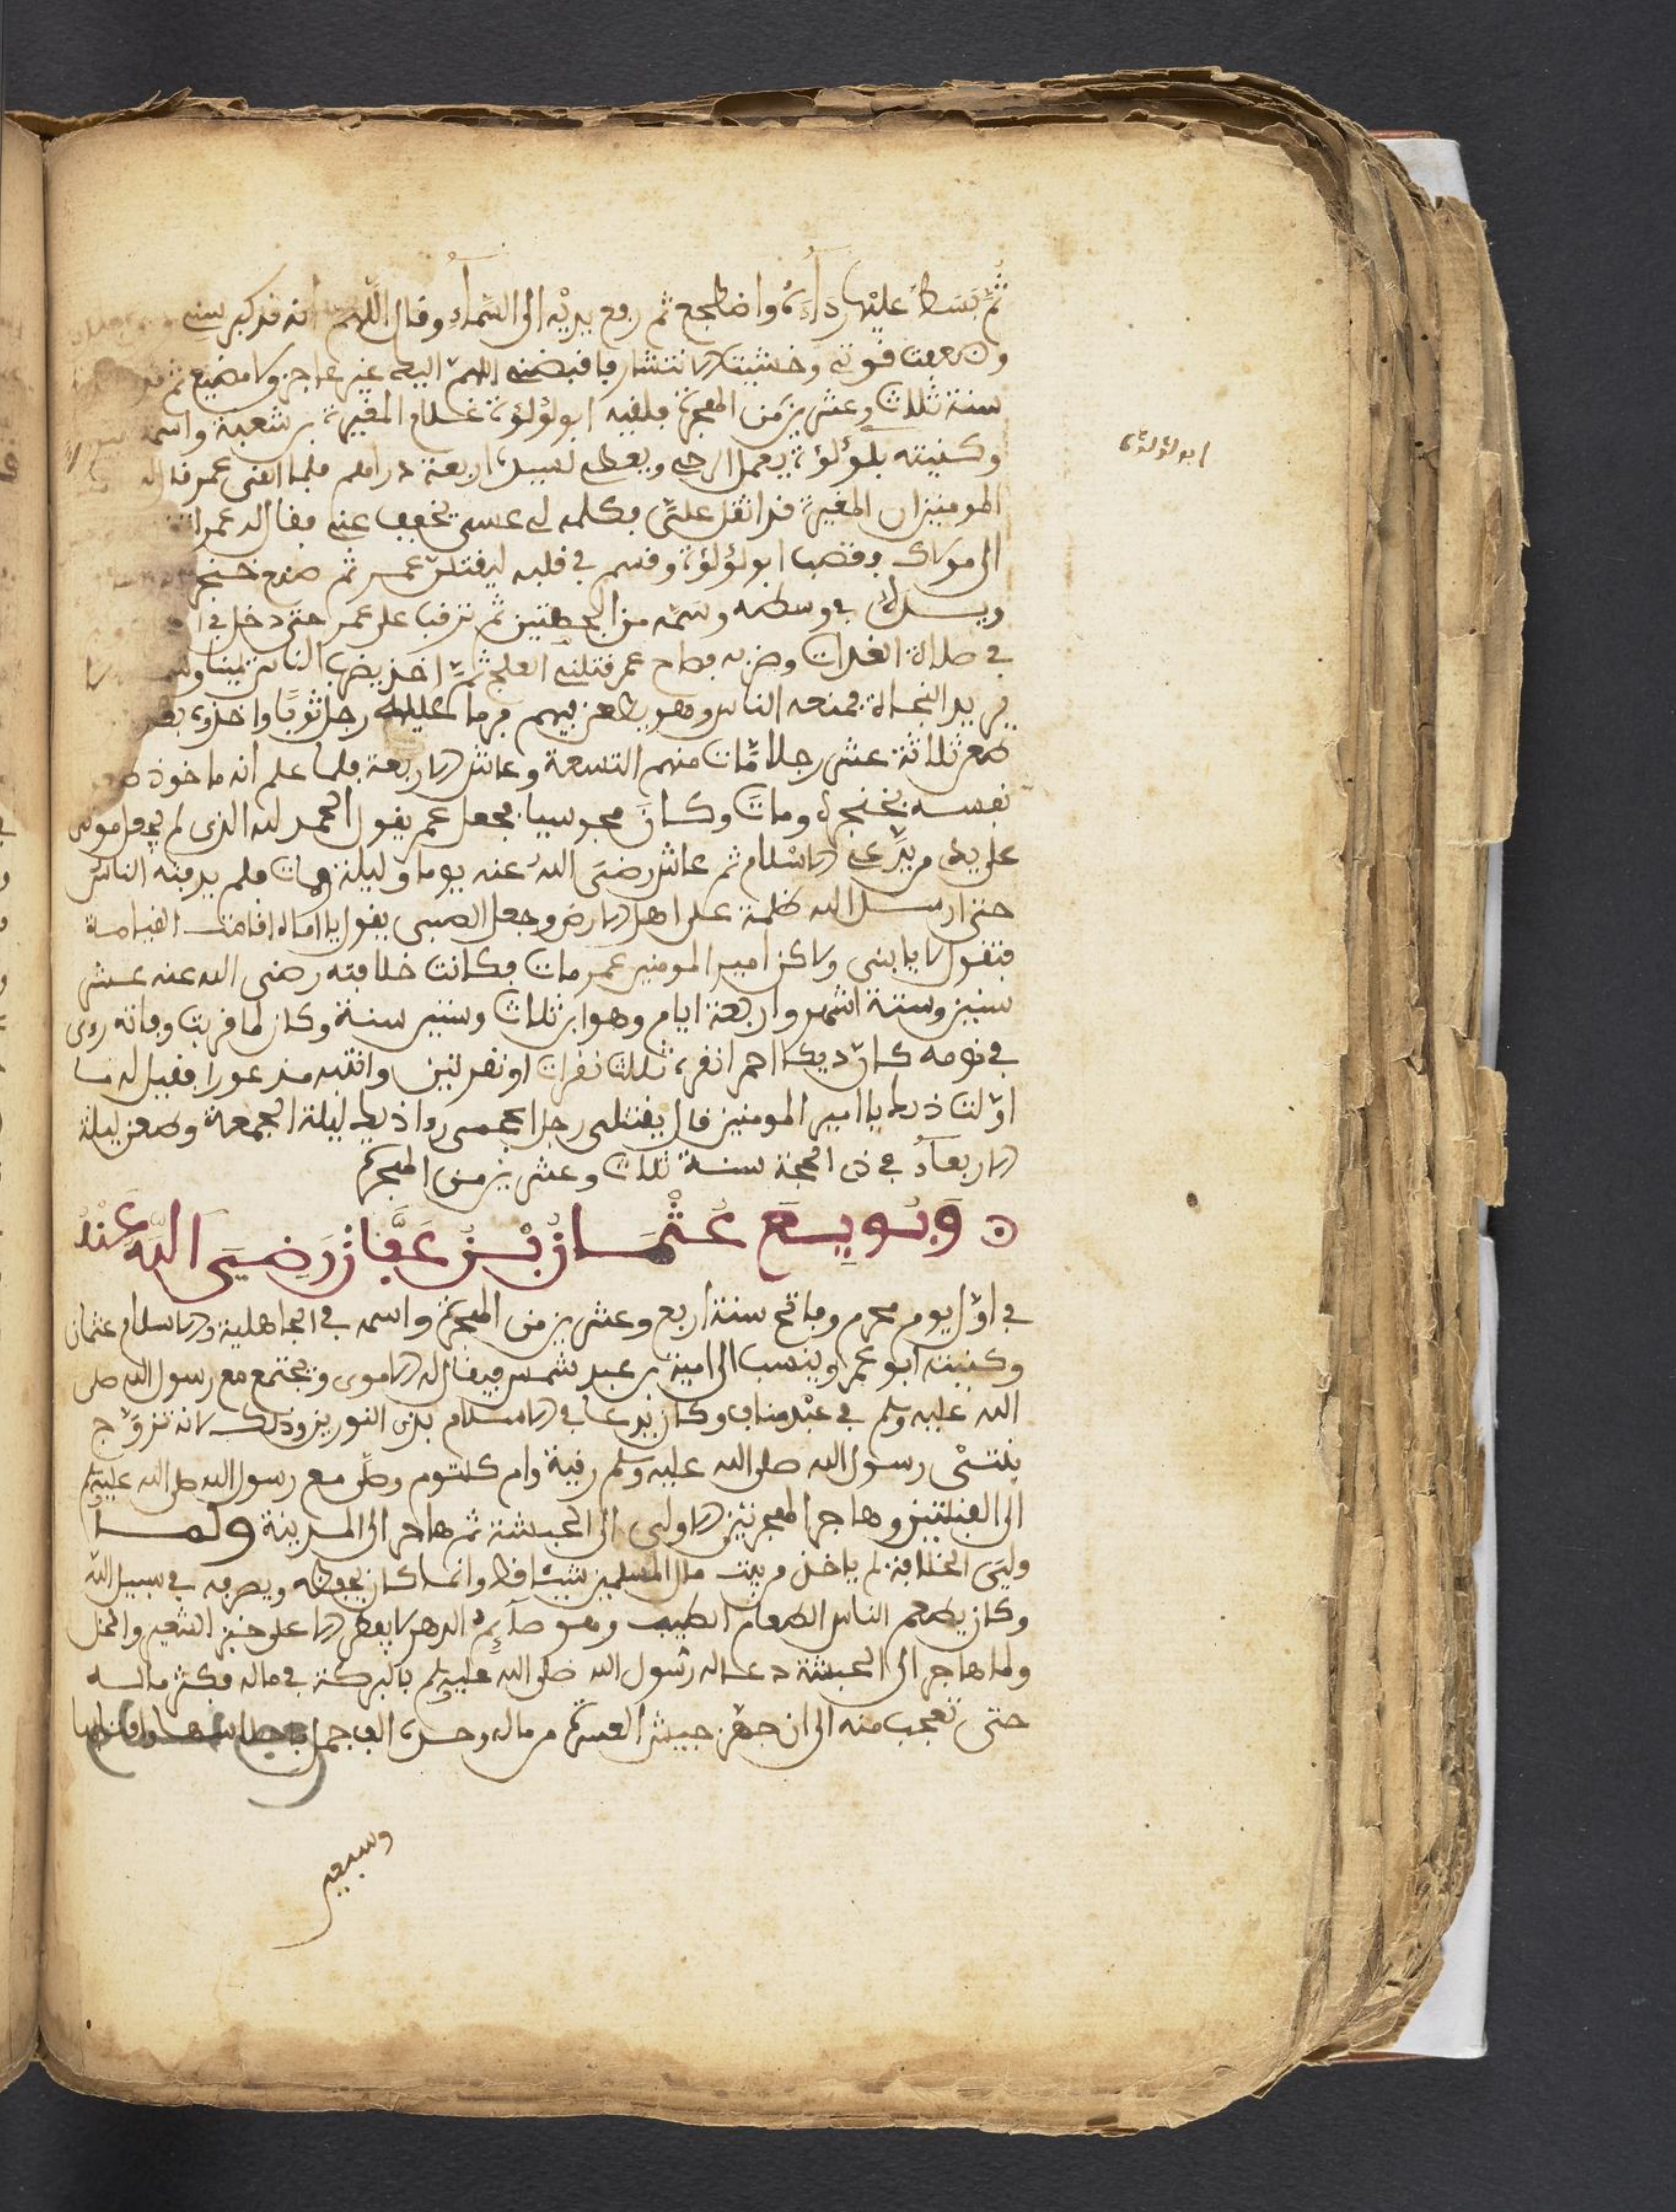 ثُمَّ بَسَطَ عليْها رداءَهُ واضطجع ثم رفع يديْه الى السَّماءِ وقال اللهم انه قد كبر سنى
وضعفت قوتى وخشيت الانتشار فاقبضنى اللهم اليك غير عاجز ولا مضيع ثم
سنة ثلاث وعشرين من الهجرة فلقيه ابو لؤلؤة غلام المغيرة بن شعبة واسمه
وكنيته بلؤلؤة يعمل الرحى ويعطى لسيده اربعة دراهم فلما لقى عمر قال له
المومنين ان المغيرة قد اثقل علىّ فكلمه لى عسى يخفف عنى فقال له عمر اتق
الى مولاك فغضب ابو لؤلؤة وقسم فى قلبه ليقتلن عمر ثم صنع خنجر
ويسك فى وسطه وسمه من الجهتين ثم ترقب على عمر حتى دخل فى
فى صلاة الغداة وضربه فصاح عمر قتلنى العلج ثمّ اخذ يضرب الناس يمينا وشمالا
يريد النجاة فمنعه الناس وهو يطعن فيهم فرما عليه رجل ثوبًا واخذه بعد
طعن ثلاثة عشر رجلا مّات منهم التسعة وعاش الاربعة فلما علم انه ماخوذ طعن
نفسه بخنجره ومات وكان مجوسيا فجعل عمر يقول الحمد لله الذى لم يجعل موتى
على يدى من يدّعى الاسلام ثم عاش رضى الله عنه يوما وليلة ومات فلم يدفنه الناس
حتى ارسل الله ظلمة على اهل الارض وجعل الصبى يقول يا اماه اقامت القيامة
فتقول لا يا بنى ولاكن امير المومنين عمر مات فكانت خلافته رضى الله عنه عشر
سنين وستة اشهر واربعة ايام وهو ابن ثلاث وستين سنة وكان لما قربت وفاته رءى
فى نومه كان ديكا احمر انقره ثلاث نقرات او نقرتين وانتبه مذعورا فقيل له ما
اوّلت ذلك يا امير المومنين قال يقتلنى رجل اعجمى رءا ذلك ليلة الجمعة وطعن ليلة
الاربعاء فى ذى الحجة سنة ثلاث وعشرين من الهجرة
وَبُويِعَ عُثْمَانُ بْنُ عَفَّانَ رَضِيَ اللَّهُ عَنْهُ
فى اوّل يوم محرم وفاتح سنة اربع وعشرين من الهجرة واسمه فى الجاهلية والاسلام عثمان
وكنيته ابو عمر وينسب الى امية بن عبد شمس فيقال له الاموى ويجتمع مع رسول الله صلى
الله عليه وسلم فى عبْد مناف وكان يدعا فى الاسلام بذى النورين وذلك لانه تزوّج
بنتىْ رسول الله صلى الله عليه وسلم رقية وام كلتوم وصلّى مع رسول الله صلى الله عليه وسلم
الى القبلتين وهاجر الهجرتين الاولى الى الحبشة ثم هاجر الى المدينة ولما
ولىَ الخلافة لم ياخذ من بيت مال المسلمين شيئا قط وانما كان يحفظه ويصرفه فى سبيل الله
وكان يطعم الناس الطعام الطيب وهو صآئم الدهر لا يفطر الا على خبز الشعير والخل
ولما هاجر الى الحبشة دعا له رسول الله صلى الله عليه وسلم بالبركة فى ماله فكثر ماله
حتى تعجب منه الى ان جهّز جيش العسرة من ماله وحده الف جمل
وسبعين
ابو لؤلؤة